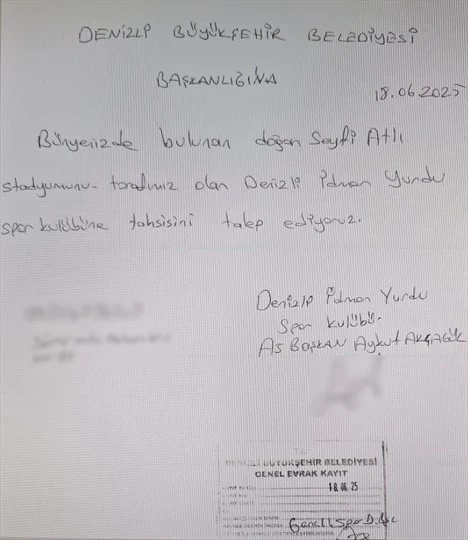 DENİZLİ BÜYÜKŞEHİR BELEDİYESİ
BAŞKANLIĞINA
18.06.2025
Bünyenizde bulunan doğan Seyfi Atlı
stadyumunu tarafımız olan Denizli İdman Yurdu
spor kulübüne tahsisini talep ediyoruz.
Denizli İdman Yurdu
Spor kulübü
AS BAŞKAN Aykut AKÇAGÜL
DENİZLİ BÜYÜKŞEHİR BELEDİYESİ
GENEL EVRAK KAYIT
18.06.25
Genclik Spor D.